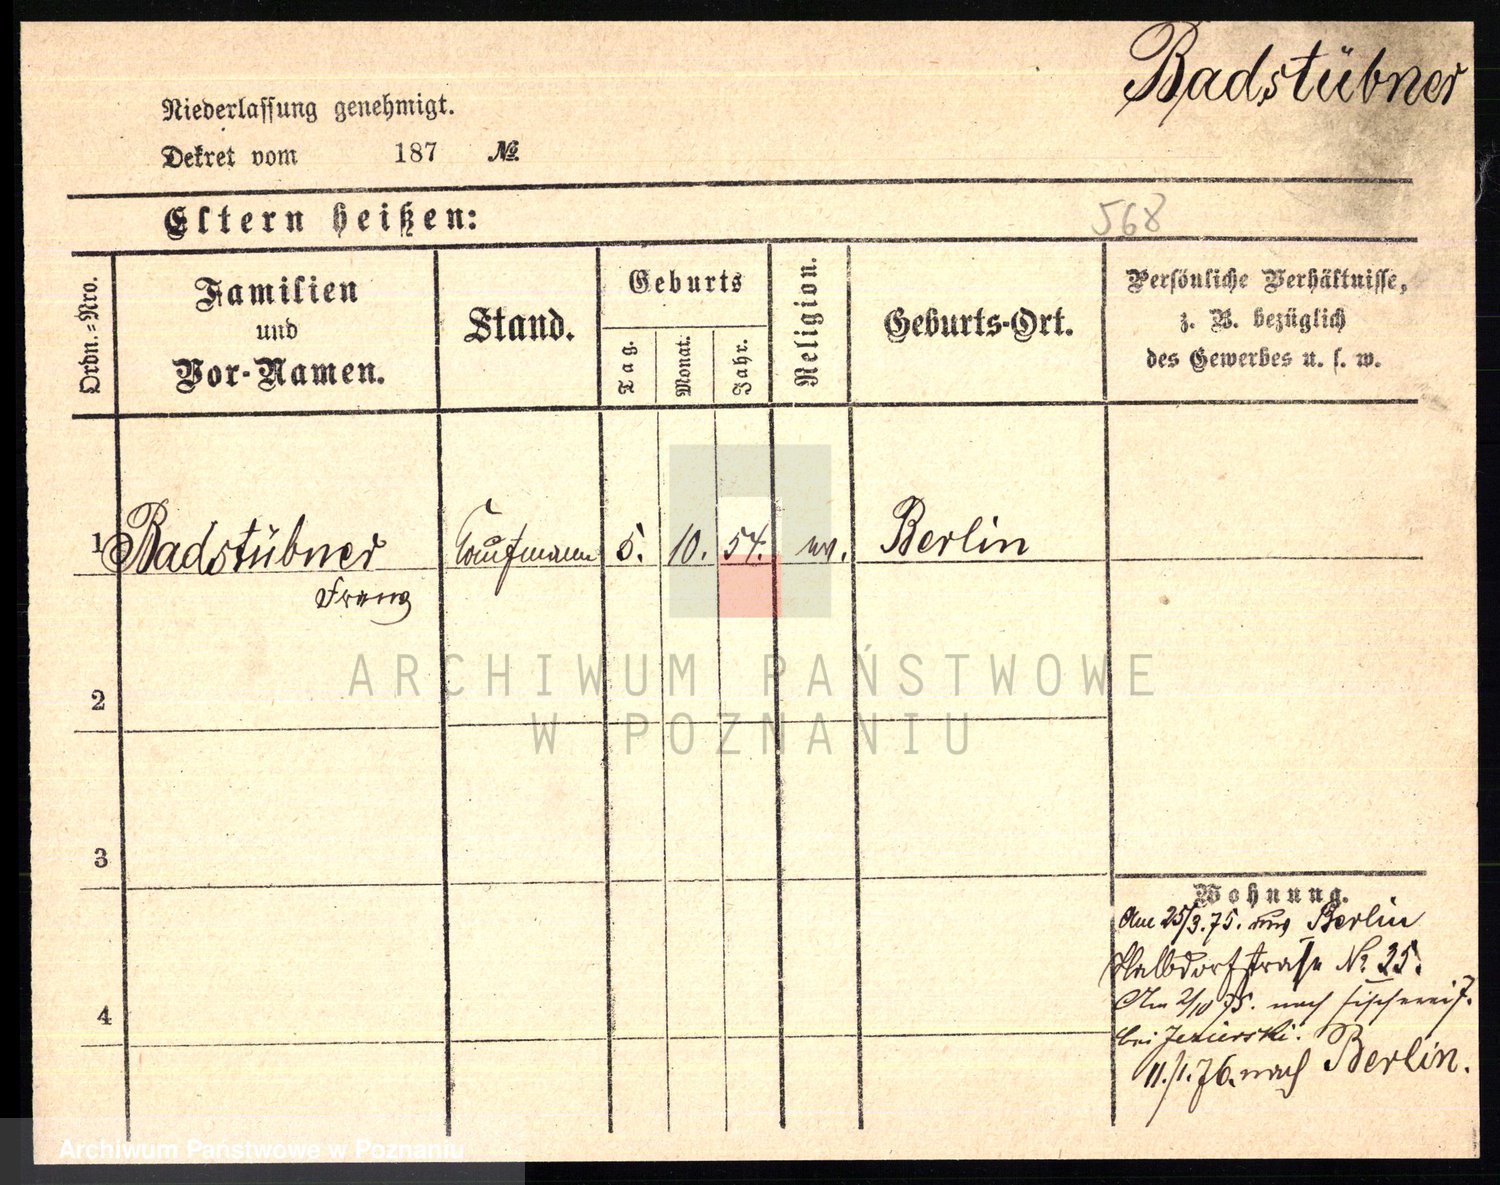 Badstübner
Niederlassung genehmigt.
Dekret vom 187 №
Eltern heißen:
568
Ordn.=Nro.
Familien
und
Vor-Namen.
Stand.
Geburts
Tag.
Monat.
Jahr.
Religion.
Geburts-Ort.
Persönliche Verhältnisse,
z. B. bezüglich
des Gewerbes u. s. w.
1 Badstübner Kaufmann 5. 10. 54. ev. Berlin
Franz
2
3
4
Wohnung.
Am 25/3.75. aus Berlin
Halbdorfstraße Nr. 35.
Am 2/10 75. nach Fischerei 7.
bei Jezierski.
11./1.76. nach Berlin.
ARCHIWUM PAŃSTWOWE
W POZNANIU
Archiwum Państwowe w Poznaniu